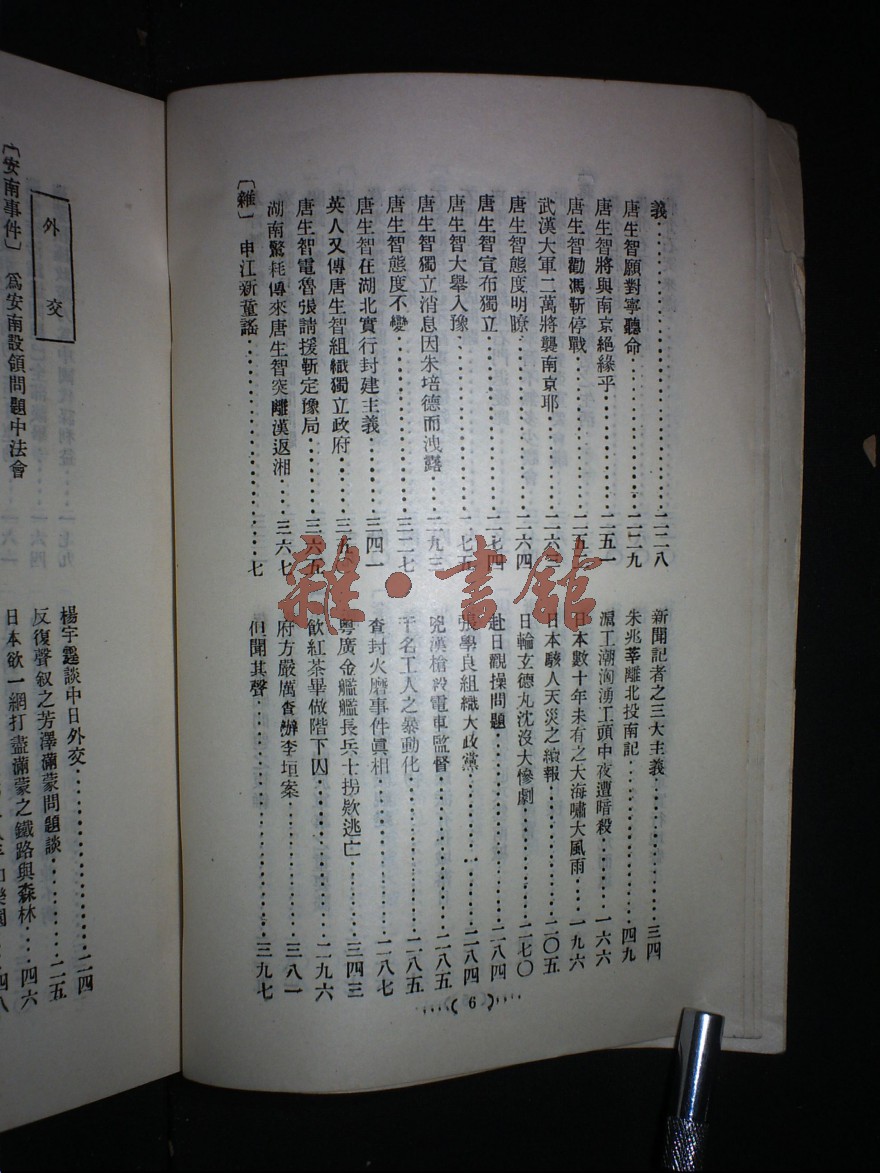 義……二二八
唐生智願對寧聽命……二二九
唐生智將與南京絕緣乎……二五一
唐生智勸馮靳停戰……二五
武漢大軍二萬將襲南京耶……二六
唐生智態度明瞭……二六四
唐生智宣布獨立……二七四
唐生智大舉入豫……七五
唐生智獨立消息因朱培德而洩露……二九三
唐生智態度不變……三二七
唐生智在湖北實行封建主義……三四一
英人又傳唐生智組織獨立政府……三五
唐生智電魯張請援靳定豫局……三六五
湖南驚耗傳來唐生智突離漢返湘……三六七
〔雜〕申江新童謠……七
新聞記者之三大主義……三四
朱兆莘離北投南記……四九
滬工潮洶湧工頭中夜遭暗殺……一六六
日本數十年未有之大海嘯大風雨……一九六
日本駭人天災之續報……二〇五
日輪玄德丸沈沒大慘劇……二七〇
赴日觀操問題……二八四
張學良組織大政黨……二八四
兇漢槍殺電車監督……二八五
千名工人之暴動化……二八五
查封火磨事件眞相……二八七
粵廣金艦艦長兵士拐欵逃亡……三四三
飲紅茶畢做階下囚……二九六
府方嚴厲查辦李垣案……三八一
但聞其聲……三九七
6
外交
〔安南事件〕爲安南設領問題中法會
楊宇霆談中日外交……二四
反復聲叙之芳澤滿蒙問題談……二五
日本欲一網打盡滿蒙之鐵路與森林……四六
四八
雜·書館